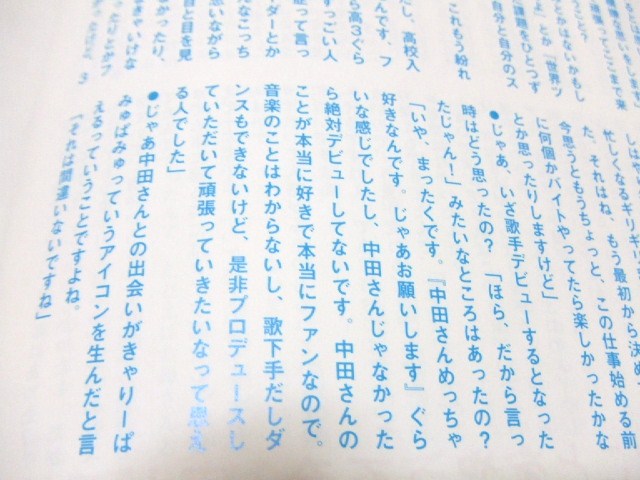 張ってここまで来
てかはないかもし
よ」とか「世界ツ
題をひとつず
自分と自分のス
これもう紛れ
だし、高校入
んです。フ
ら高3ぐら
すっごい人
って言っ
ーダーとか
なこっち
思いながら
目と目を見
かったり、
ゃいけな
忙しくなるギリギリ
た、それはね、もう最初から決め
今思うともうちょっと、この仕事始める前
に何個かバイトやってたら楽しかったかな
とか思ったりしますけど」
●じゃあ、いざ歌手デビューするとなった
時はどう思ったの？「ほら、だから言っ
たじゃん！」みたいなところはあったの？
「いや、まったくです。『中田さんめっちゃ
好きなんです。じゃあお願いします』ぐら
いな感じでしたし、中田さんじゃなかった
ら絶対デビューしてないです。中田さんの
ことが本当に好きで本当にファンなので。
音楽のことはわからないし、歌下手だしダ
ンスもできないけど、是非プロデュースし
ていただいて頑張っていきたいなって思え
る人でした」
●じゃあ中田さんとの出会いがきゃりーぱ
みゅぱみゅっていうアイコンを生んだと言
えるっていうことですよね。
「それは間違いないですね」